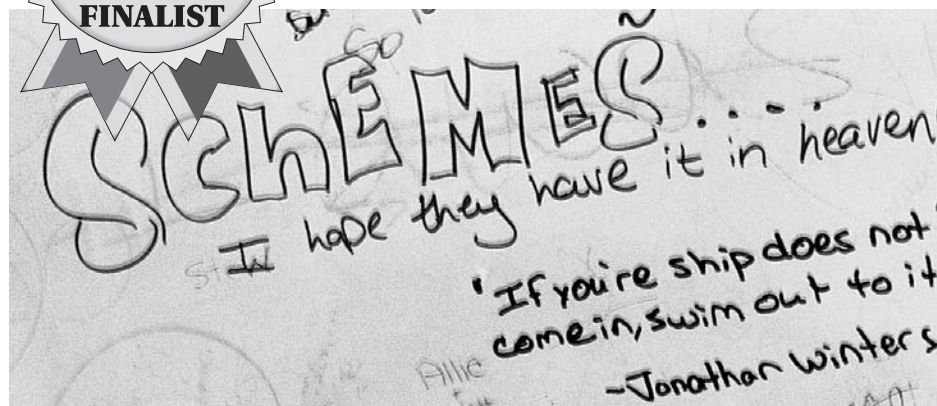 FINALIST
So
SChEMES.....
I hope they have it in heaven
"If you're ship does not
come in, swim out to it
Allie
~Jonathan Winters